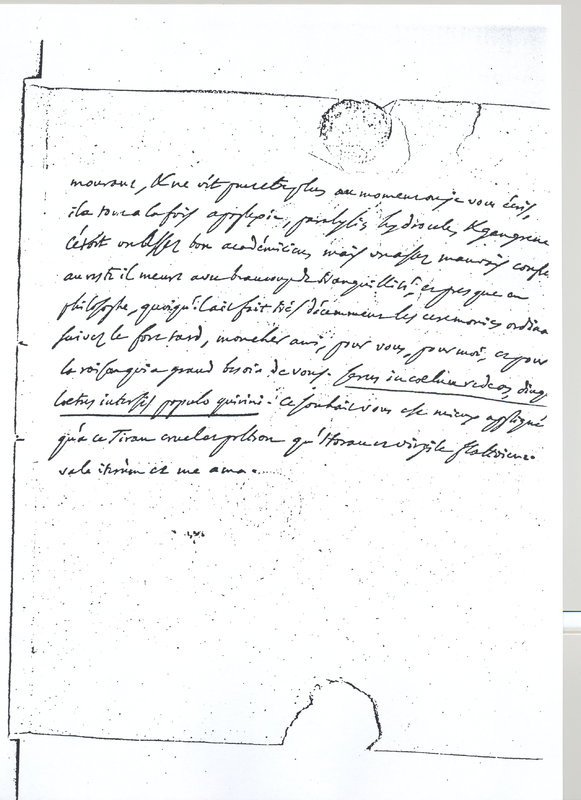 mourant, & ne vit peut etre plus au moment ou je vous écris,
il a tout a la fois apoplexie, paralysie, hydrocele & gangrene
C'étoit un assez bon académicien mais un assez mauvais confre
au reste il meurt avec beaucoup de tranquillité, et presque en
philosophe, quoiqu'il ait fait très décemment les ceremonies ordina
suivez le fort tard, mon cher ami, pour vous, pour moi, et pour
la raison qui a grand besoin de vous. Serus in coelum redeas, diuq
laetus intersis populo quirini. Ce souhait vous est mieux appliqué
qu'a ce Tiran cruel et poltron qu'Horace et virgile flattoient.
vale iterum et me ama.